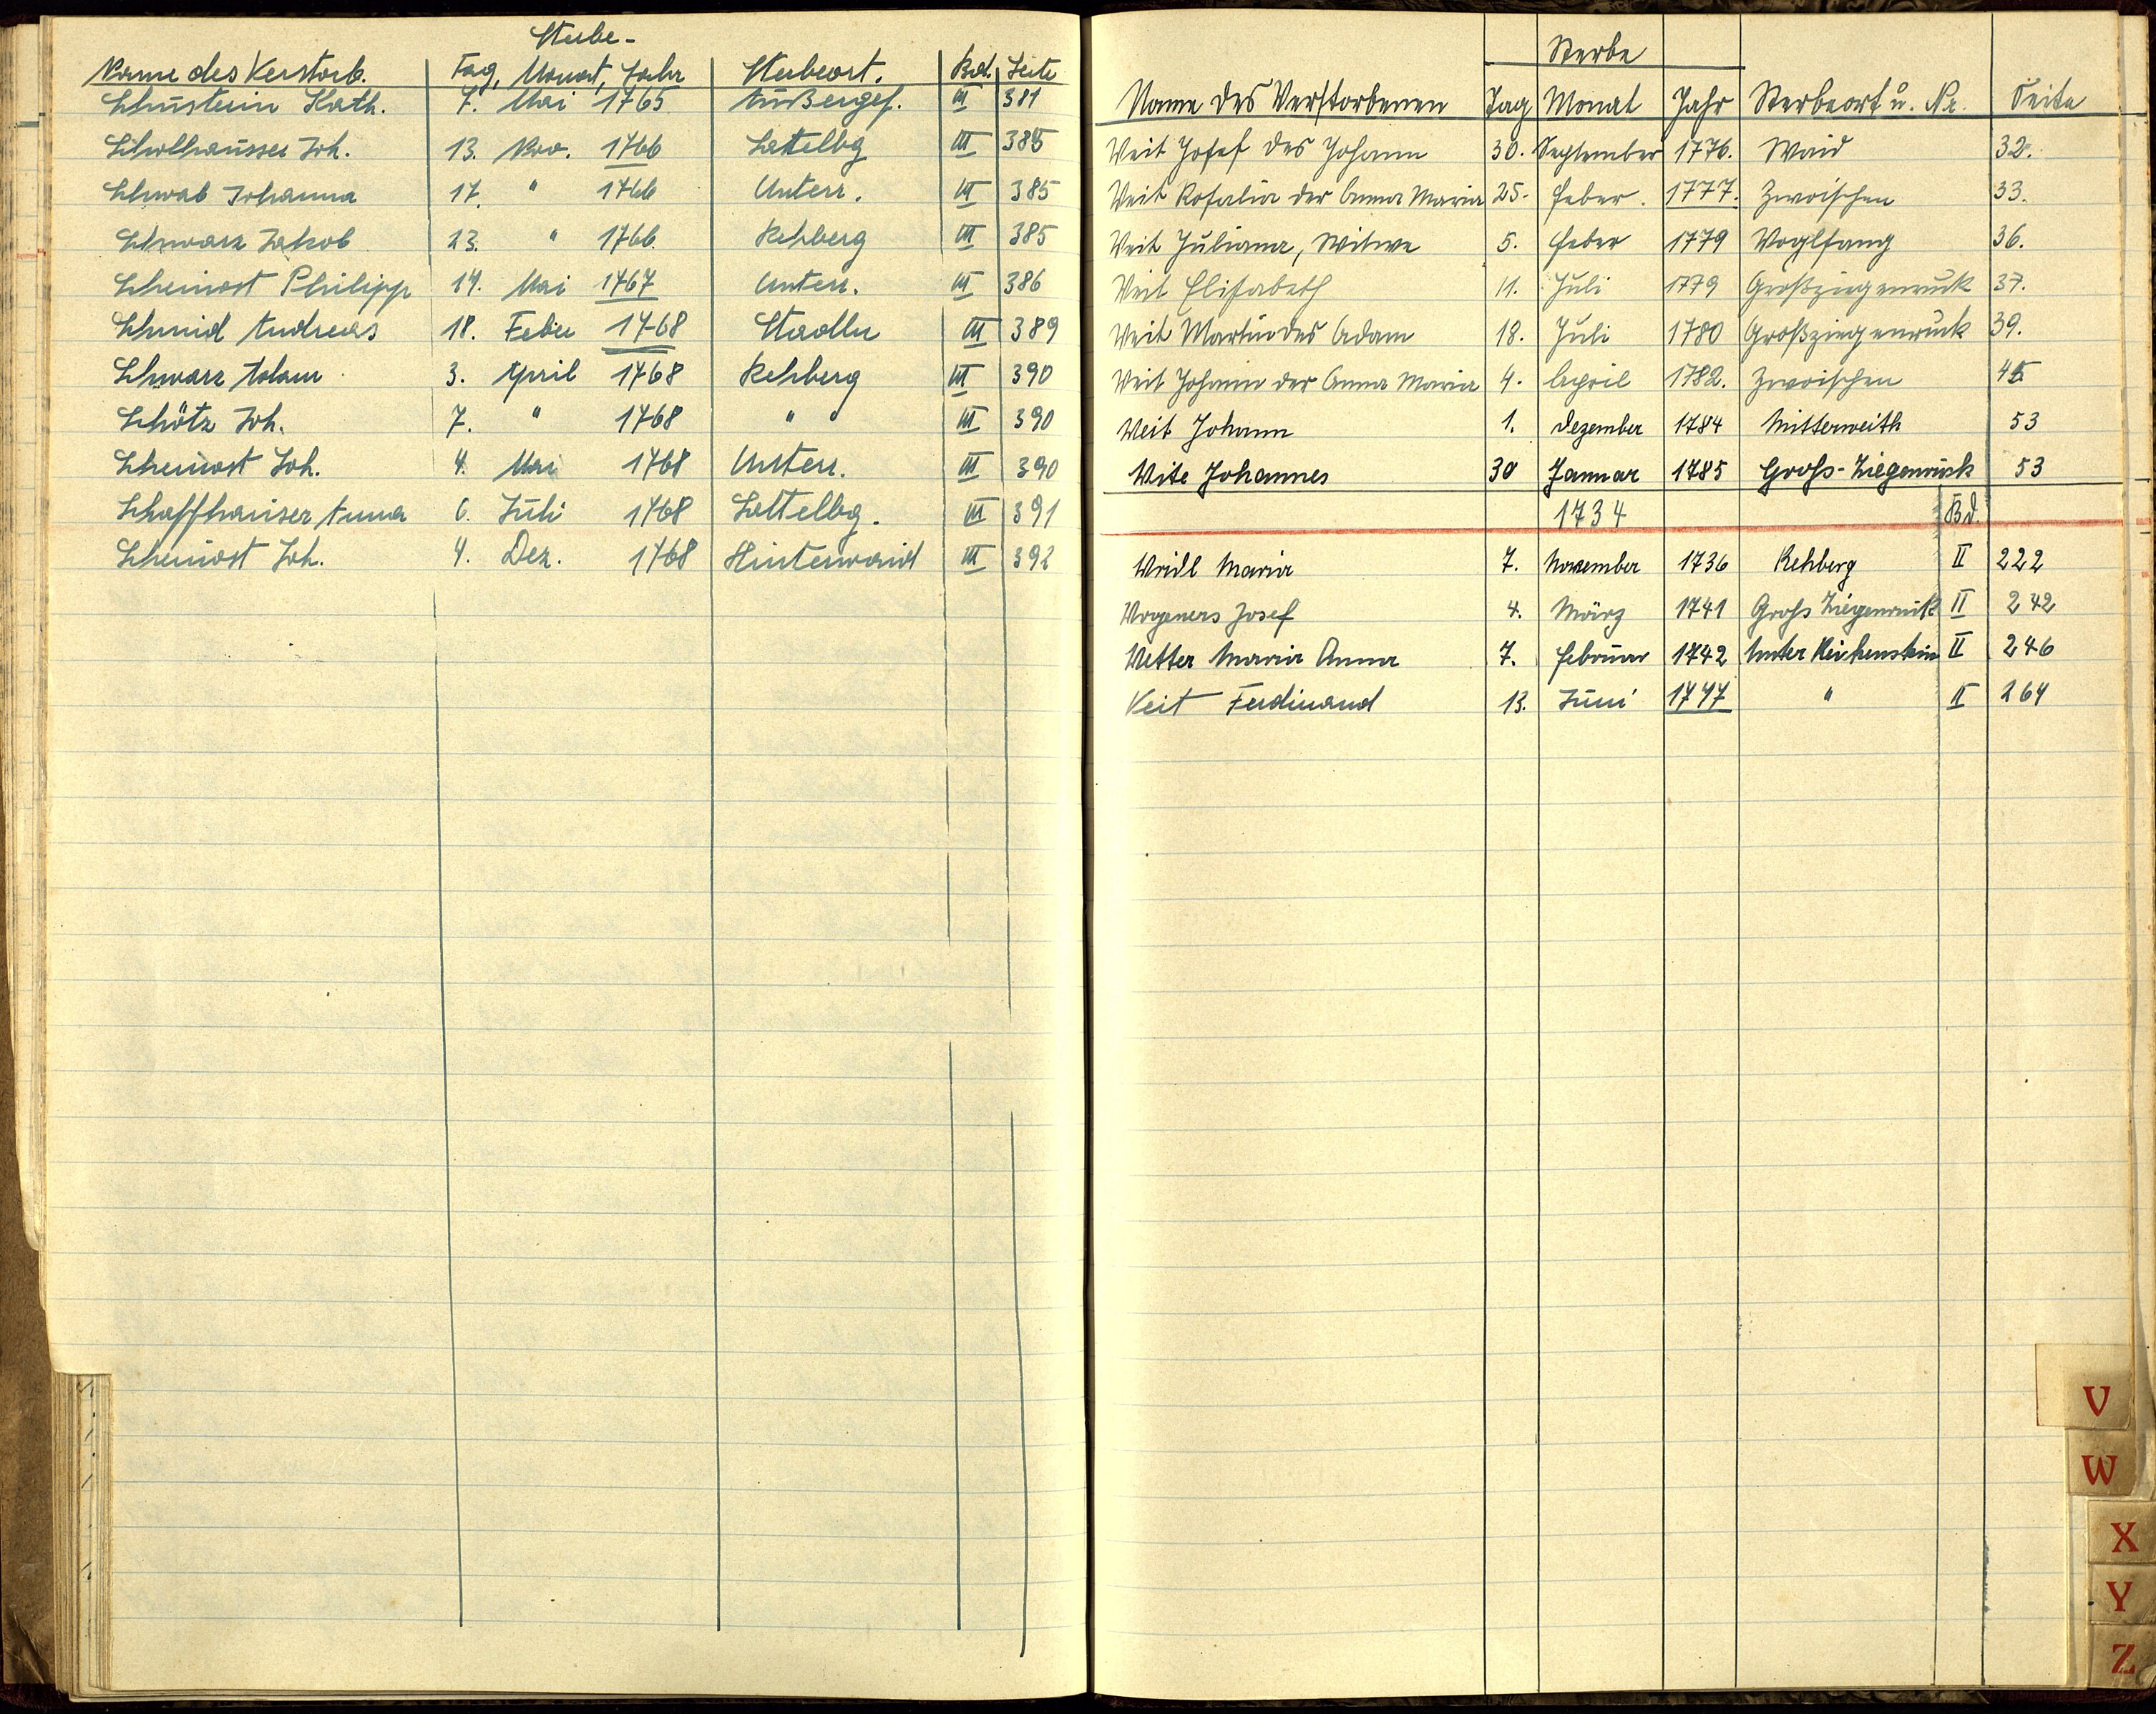 Sterbe-
Name des Verstorb. Tag, Monat, Jahr Sterbeort. Bd. Seite
Schusterin Kath. 7. Mai 1765 Außergef. III 381
Schollhausser Joh. 13. Nov. 1766 Sattelbg III 385
Schwab Johanna 17. " 1766 Unterr. III 385
Schwarz Jakob 23. " 1766. Rehberg III 385
Scheinost Philipp 14. Mai 1767 Unterr. III 386
Schmid Andreas 18. Feber 1768 Stadln III 389
Schwarz Adam 3. April 1768 Rehberg III 390
Schötz Joh. 7. " 1768 " III 390
Scheinost Joh. 4. Mai 1768 Unterr. III 390
Schaffhauser Anna 6. Juli 1768 Sattelbg. III 391
Scheinost Joh. 4. Dez. 1768 Hinterwaid III 392
Sterbe
Name des Verstorbenen Tag Monat Jahr Sterbeort u. Nr. Seite
Veit Josef des Johann 30. September 1776. Waid 32.
Veit Rosalia der Anna Maria 25. Feber. 1777. Zwoischen 33.
Veit Juliana, Witwe 5. Feber 1779 Voglfang 36.
Veit Elisabeth 11. Juli 1779 Großziegenruck 37.
Veit Martin des Adam 18. Juli 1780 Großziegenruck 39.
Veit Johann der Anna Maria 4. April 1782. Zwoischen
Veit Johann 1. Dezember 1784 Mitterweith 53
Veit Johannes 30 Jannar 1785 Gross-Ziegenruck 53
1734 Bd.
Veidl Maria 7. November 1736 Rehberg II 222
Josef 4. März 1741 Gross Ziegenruck II 242
Vetter Maria Anna 7. Februar 1742 Unter Reichenstein II 246
Veit Ferdinand 13. Juni 1747 " II 264
V
W
X
Y
Z